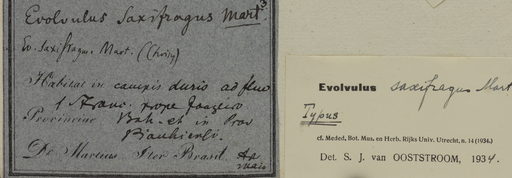 Evolvulus Saxifragus Mart.
Ev. Saxifragus. Mart.
Habitat in campis duris ad fluv
S. Franc. prope Joazeiro
Provinciae Bah. et in Prov
Piauhiensi.
Dr. Martius Iter Brasil.
Maio
Evolvulus saxifragus Mart
Typus
cf. Meded. Bot. Mus. en Herb. Rijks Univ. Utrecht, n. 14 (1934.)
Det. S. J. van OOSTSTROOM, 1934.